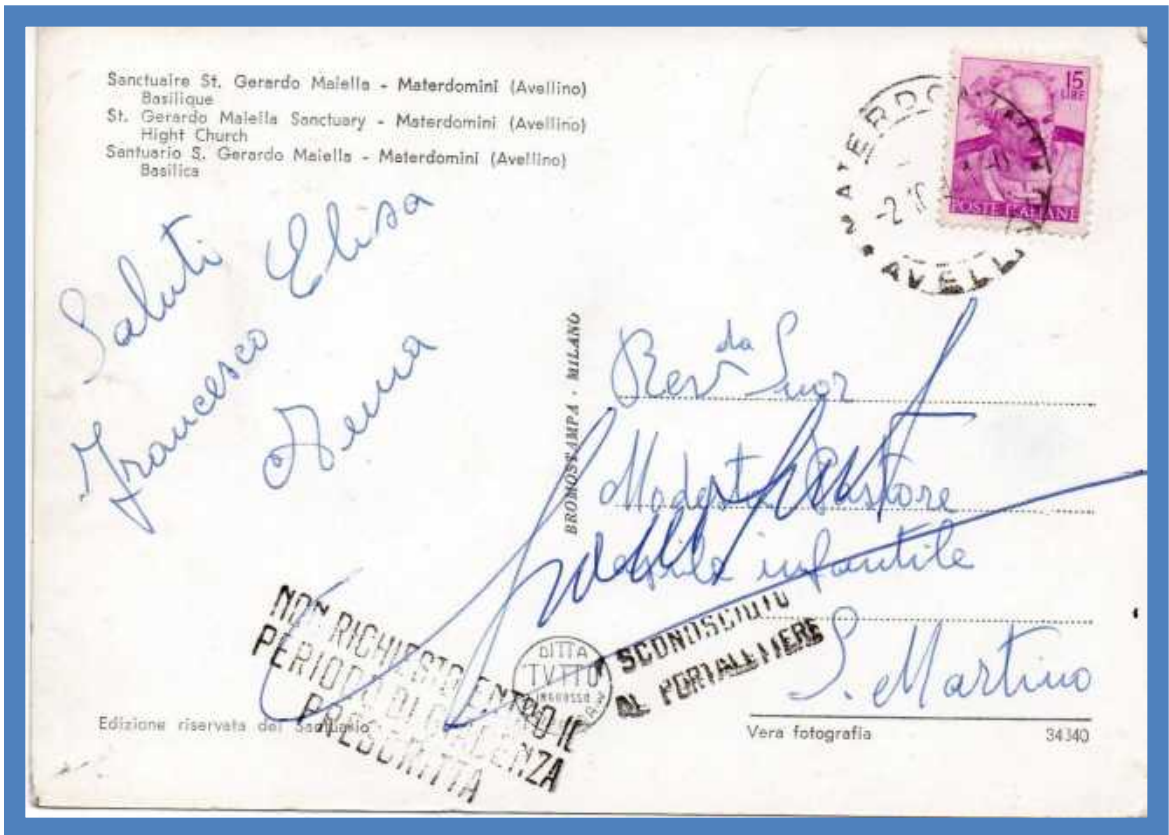 Sanctuaire St. Gerardo Maiella - Materdomini (Avellino)
Basilique
St. Gerardo Maiella Sanctuary - Materdomini (Avellino)
Hight Church
Santuario S. Gerardo Maiella - Materdomini (Avellino)
Basilica
15
LIRE
POSTE ITALIANE
AVELLINO
-2
Saluti
Francesco Elisa
BROMOSTAMPA - MILANO
Rev da Suor
Modesta Pastore
Asilo infantile
S. Martino
NON RICHIESTO ENTRO IL
PERIODO DI GIACENZA
PRESCRITTA
DITTA
TVTTO
INGROSSO
SCONOSCIUTO
AL PORTALETTERE
Edizione riservata del Santuario
Vera fotografia
34340